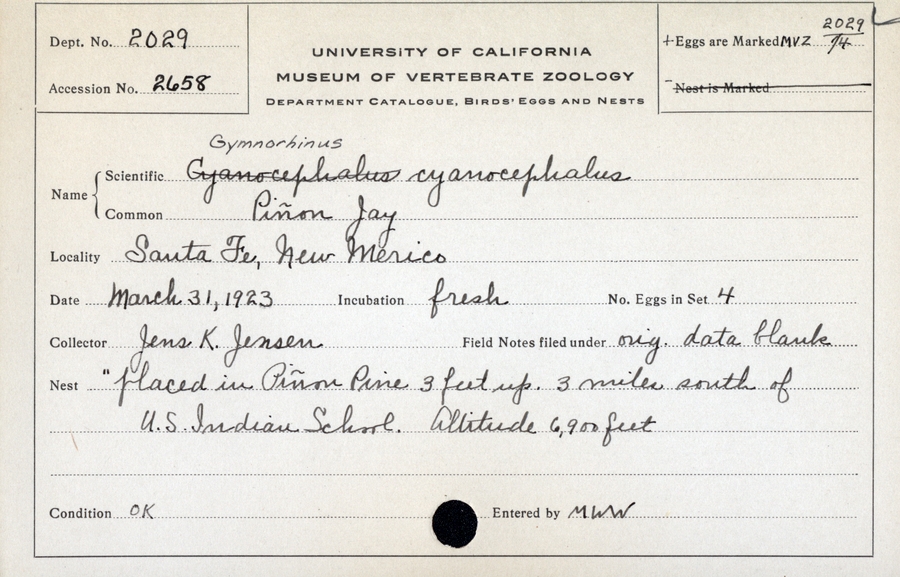 Dept. No. 2029
Accession No. 2658
UNIVERSITY OF CALIFORNIA
MUSEUM OF VERTEBRATE ZOOLOGY
DEPARTMENT CATALOGUE, BIRDS' EGGS AND NESTS
2029
+Eggs are Marked MVZ /4
-Nest is Marked
Gymnorhinus
Name Scientific Cyanocephalus cyanocephalus
Common Piñon Jay
Locality Santa Fe, New Mexico
Date March 31, 1923 Incubation fresh No. Eggs in Set 4
Collector Jens K. Jensen Field Notes filed under orig. data blank
Nest "placed in Piñon Pine 3 feet up. 3 miles south of
U.S. Indian School. Altitude 6,900 feet
Condition OK Entered by MWW